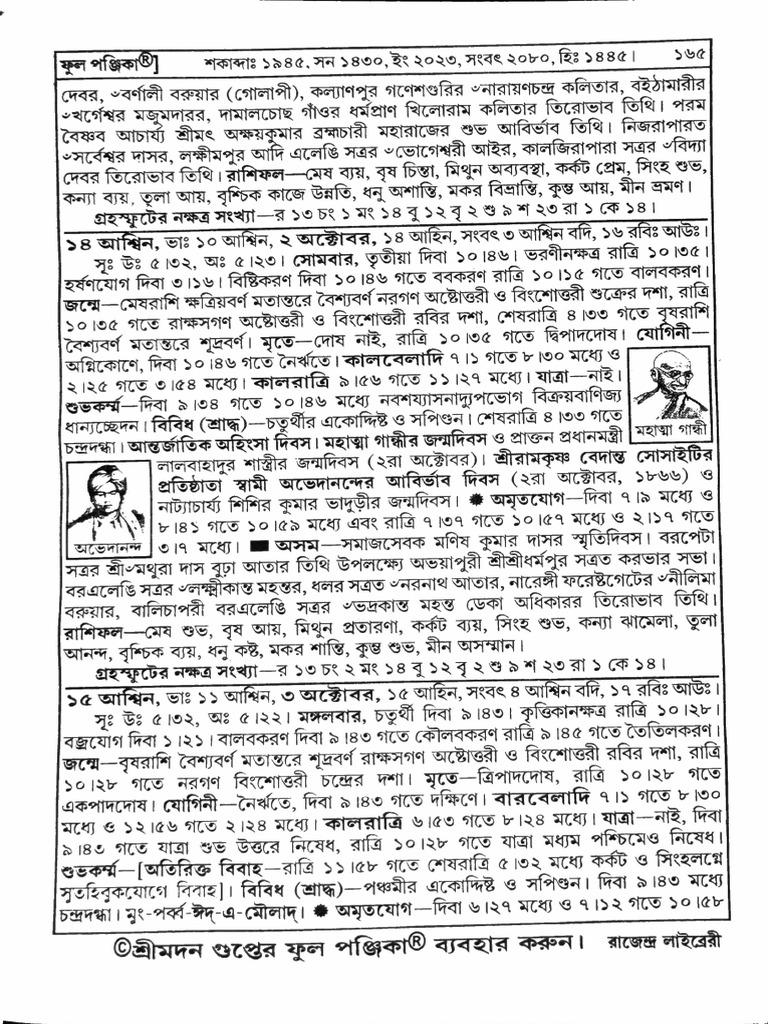 ফুল পঞ্জিকা®] শকাব্দাঃ ১৯৪৫, সন ১৪৩০, ইং ২০২৩, সংবৎ ২০৮০, হিঃ ১৪৪৫। ১৬৫
দেবর, ৺বর্ণালী বরুয়ার (গোলাপী), কল্যাণপুর গণেশগুরির ৺নারায়ণচন্দ্র কলিতার, বইঠামারীর
৺খর্গেশ্বর মজুমদারর, দামালচোছ গাঁওর ধর্মপ্রাণ খিলোরাম কলিতার তিরোভাব তিথি। পরম
বৈষ্ণব আচার্য্য শ্রীমৎ অক্ষয়কুমার ব্রহ্মচারী মহারাজের শুভ আবির্ভাব তিথি। নিজরাপারত
৺সর্বেশ্বর দাসর, লক্ষীমপুর আদি এলেঙি সত্রর ৺ভোগেশ্বরী আইর, কালজিরাপারা সত্রর ৺বিদ্যা
দেবর তিরোভাব তিথি। রাশিফল—মেষ ব্যয়, বৃষ চিন্তা, মিথুন অব্যবস্থা, কর্কট প্রেম, সিংহ শুভ,
কন্যা ব্যয়, তুলা আয়, বৃশ্চিক কাজে উন্নতি, ধনু অশান্তি, মকর বিভ্রান্তি, কুম্ভ আয়, মীন ভ্রমণ।
গ্রহস্ফুটের নক্ষত্র সংখ্যা—র ১৩ চং ১ মং ১৪ বু ১২ বৃ ২ শু ৯ শ ২৩ রা ১ কে ১৪।
১৪ আশ্বিন, ভাঃ ১০ আশ্বিন, ২ অক্টোবর, ১৪ আহিন, সংবৎ ৩ আশ্বিন বদি, ১৬ রবিঃ আউঃ।
সূঃ উঃ ৫।৩২, অঃ ৫।২৩। সোমবার, তৃতীয়া দিবা ১০।৪৬। ভরণীনক্ষত্র রাত্রি ১০।৩৫।
হর্ষণযোগ দিবা ৩।১৬। বিষ্টিকরণ দিবা ১০।৪৬ গতে ববকরণ রাত্রি ১০।১৫ গতে বালবকরণ।
জন্মে—মেষরাশি ক্ষত্রিয়বর্ণ মতান্তরে বৈশ্যবর্ণ নরগণ অষ্টোত্তরী ও বিংশোত্তরী শুক্রের দশা, রাত্রি
১০।৩৫ গতে রাক্ষসগণ অষ্টোত্তরী ও বিংশোত্তরী রবির দশা, শেষরাত্রি ৪।৩৩ গতে বৃষরাশি
বৈশ্যবর্ণ মতান্তরে শূদ্রবর্ণ। মৃতে—দোষ নাই, রাত্রি ১০।৩৫ গতে দ্বিপাদদোষ। যোগিনী—
অগ্নিকোণে, দিবা ১০।৪৬ গতে নৈর্ঋতে। কালবেলাদি ৭।১ গতে ৮।৩০ মধ্যে ও
২।২৫ গতে ৩।৫৪ মধ্যে। কালরাত্রি ৯।৫৬ গতে ১১।২৭ মধ্যে। যাত্রা—নাই।
শুভকর্ম্ম—দিবা ৯।৩৪ গতে ১০।৪৬ মধ্যে নবশয্যাসনাদ্যুপভোগ বিক্রয়বাণিজ্য
ধান্যচ্ছেদন। বিবিধ (শ্রাদ্ধ)—চতুর্থীর একোদ্দিষ্ট ও সপিণ্ডন। শেষরাত্রি ৪।৩৩ গতে
মহাত্মা গান্ধী
চন্দ্রদগ্ধা। আন্তর্জাতিক অহিংসা দিবস। মহাত্মা গান্ধীর জন্মদিবস ও প্রাক্তন প্রধানমন্ত্রী
লালবাহাদুর শাস্ত্রীর জন্মদিবস (২রা অক্টোবর)। শ্রীরামকৃষ্ণ বেদান্ত সোসাইটির
প্রতিষ্ঠাতা স্বামী অভেদানন্দের আবির্ভাব দিবস (২রা অক্টোবর, ১৮৬৬) ও
নাট্যাচার্য্য শিশির কুমার ভাদুড়ীর জন্মদিবস। ✹ অমৃতযোগ—দিবা ৭।৯ মধ্যে ও
৮।৪১ গতে ১০।৫৯ মধ্যে এবং রাত্রি ৭।৩৭ গতে ১০।৫৭ মধ্যে ও ২।১৭ গতে
অভেদানন্দ
৩।৭ মধ্যে। ■ অসম—সমাজসেবক মণিষ কুমার দাসর স্মৃতিদিবস। বরপেটা
সত্রর শ্রী৺মথুরা দাস বুঢ়া আতার তিথি উপলক্ষ্যে অভয়াপুরী শ্রীশ্রীধর্মপুর সত্রত করভার সভা।
বরএলেঙি সত্রর ৺লক্ষ্মীকান্ত মহন্তর, ধলর সত্রত ৺নরনাথ আতার, নারেঙ্গী ফরেষ্টগেটের ৺নীলিমা
বরুয়ার, বালিচাপরী বরএলেঙি সত্রর ৺ভদ্রকান্ত মহন্ত ডেকা অধিকারর তিরোভাব তিথি।
রাশিফল—মেষ শুভ, বৃষ আয়, মিথুন প্রতারণা, কর্কট ব্যয়, সিংহ শুভ, কন্যা ঝামেলা, তুলা
আনন্দ, বৃশ্চিক ব্যয়, ধনু কষ্ট, মকর শান্তি, কুম্ভ শুভ, মীন অসম্মান।
গ্রহস্ফুটের নক্ষত্র সংখ্যা—র ১৩ চং ২ মং ১৪ বু ১২ বৃ ২ শু ৯ শ ২৩ রা ১ কে ১৪।
১৫ আশ্বিন, ভাঃ ১১ আশ্বিন, ৩ অক্টোবর, ১৫ আহিন, সংবৎ ৪ আশ্বিন বদি, ১৭ রবিঃ আউঃ।
সূঃ উঃ ৫।৩২, অঃ ৫।২২। মঙ্গলবার, চতুর্থী দিবা ৯।৪৩। কৃত্তিকানক্ষত্র রাত্রি ১০।২৮।
বজ্রযোগ দিবা ১।২১। বালবকরণ দিবা ৯।৪৩ গতে কৌলবকরণ রাত্রি ৯।৪৫ গতে তৈতিলকরণ।
জন্মে—বৃষরাশি বৈশ্যবর্ণ মতান্তরে শূদ্রবর্ণ রাক্ষসগণ অষ্টোত্তরী ও বিংশোত্তরী রবির দশা, রাত্রি
১০।২৮ গতে নরগণ বিংশোত্তরী চন্দ্রের দশা। মৃতে—ত্রিপাদদোষ, রাত্রি ১০।২৮ গতে
একপাদদোষ। যোগিনী—নৈর্ঋতে, দিবা ৯।৪৩ গতে দক্ষিণে। বারবেলাদি ৭।১ গতে ৮।৩০
মধ্যে ও ১২।৫৬ গতে ২।২৪ মধ্যে। কালরাত্রি ৬।৫৩ গতে ৮।২৪ মধ্যে। যাত্রা—নাই, দিবা
৯।৪৩ গতে যাত্রা শুভ উত্তরে নিষেধ, রাত্রি ১০।২৮ গতে যাত্রা মধ্যম পশ্চিমেও নিষেধ।
শুভকর্ম্ম—[অতিরিক্ত বিবাহ—রাত্রি ১১।৫৮ গতে শেষরাত্রি ৫।৩২ মধ্যে কর্কট ও সিংহলগ্নে
সুতহিবুকযোগে বিবাহ]। বিবিধ (শ্রাদ্ধ)—পঞ্চমীর একোদ্দিষ্ট ও সপিণ্ডন। দিবা ৯।৪৩ মধ্যে
চন্দ্রদগ্ধা। মুং-পর্ব্ব-ঈদ্-এ-মৌলাদ্। ✹ অমৃতযোগ—দিবা ৬।২৭ মধ্যে ও ৭।১২ গতে ১০।৫৮
©শ্রীমদন গুপ্তের ফুল পঞ্জিকা® ব্যবহার করুন। রাজেন্দ্র লাইব্রেরী